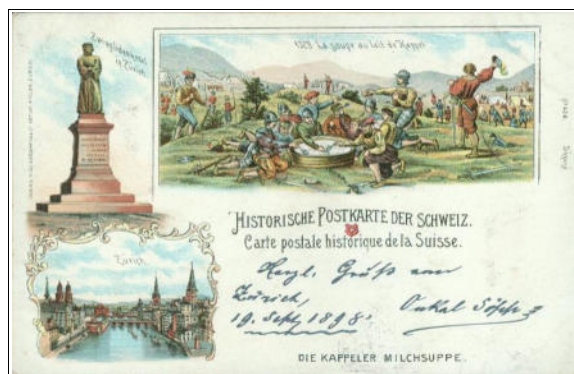 Zwinglidenkmal
in Zürich
1529 La soupe au lait de Kappel
HISTORISCHE POSTKARTE DER SCHWEIZ.
Carte postale historique de la Suisse.
Zürich
Herzl. Gruß von
Zürich,
19. Sept. 1898.
Onkel
DIE KAPPELER MILCHSUPPE.